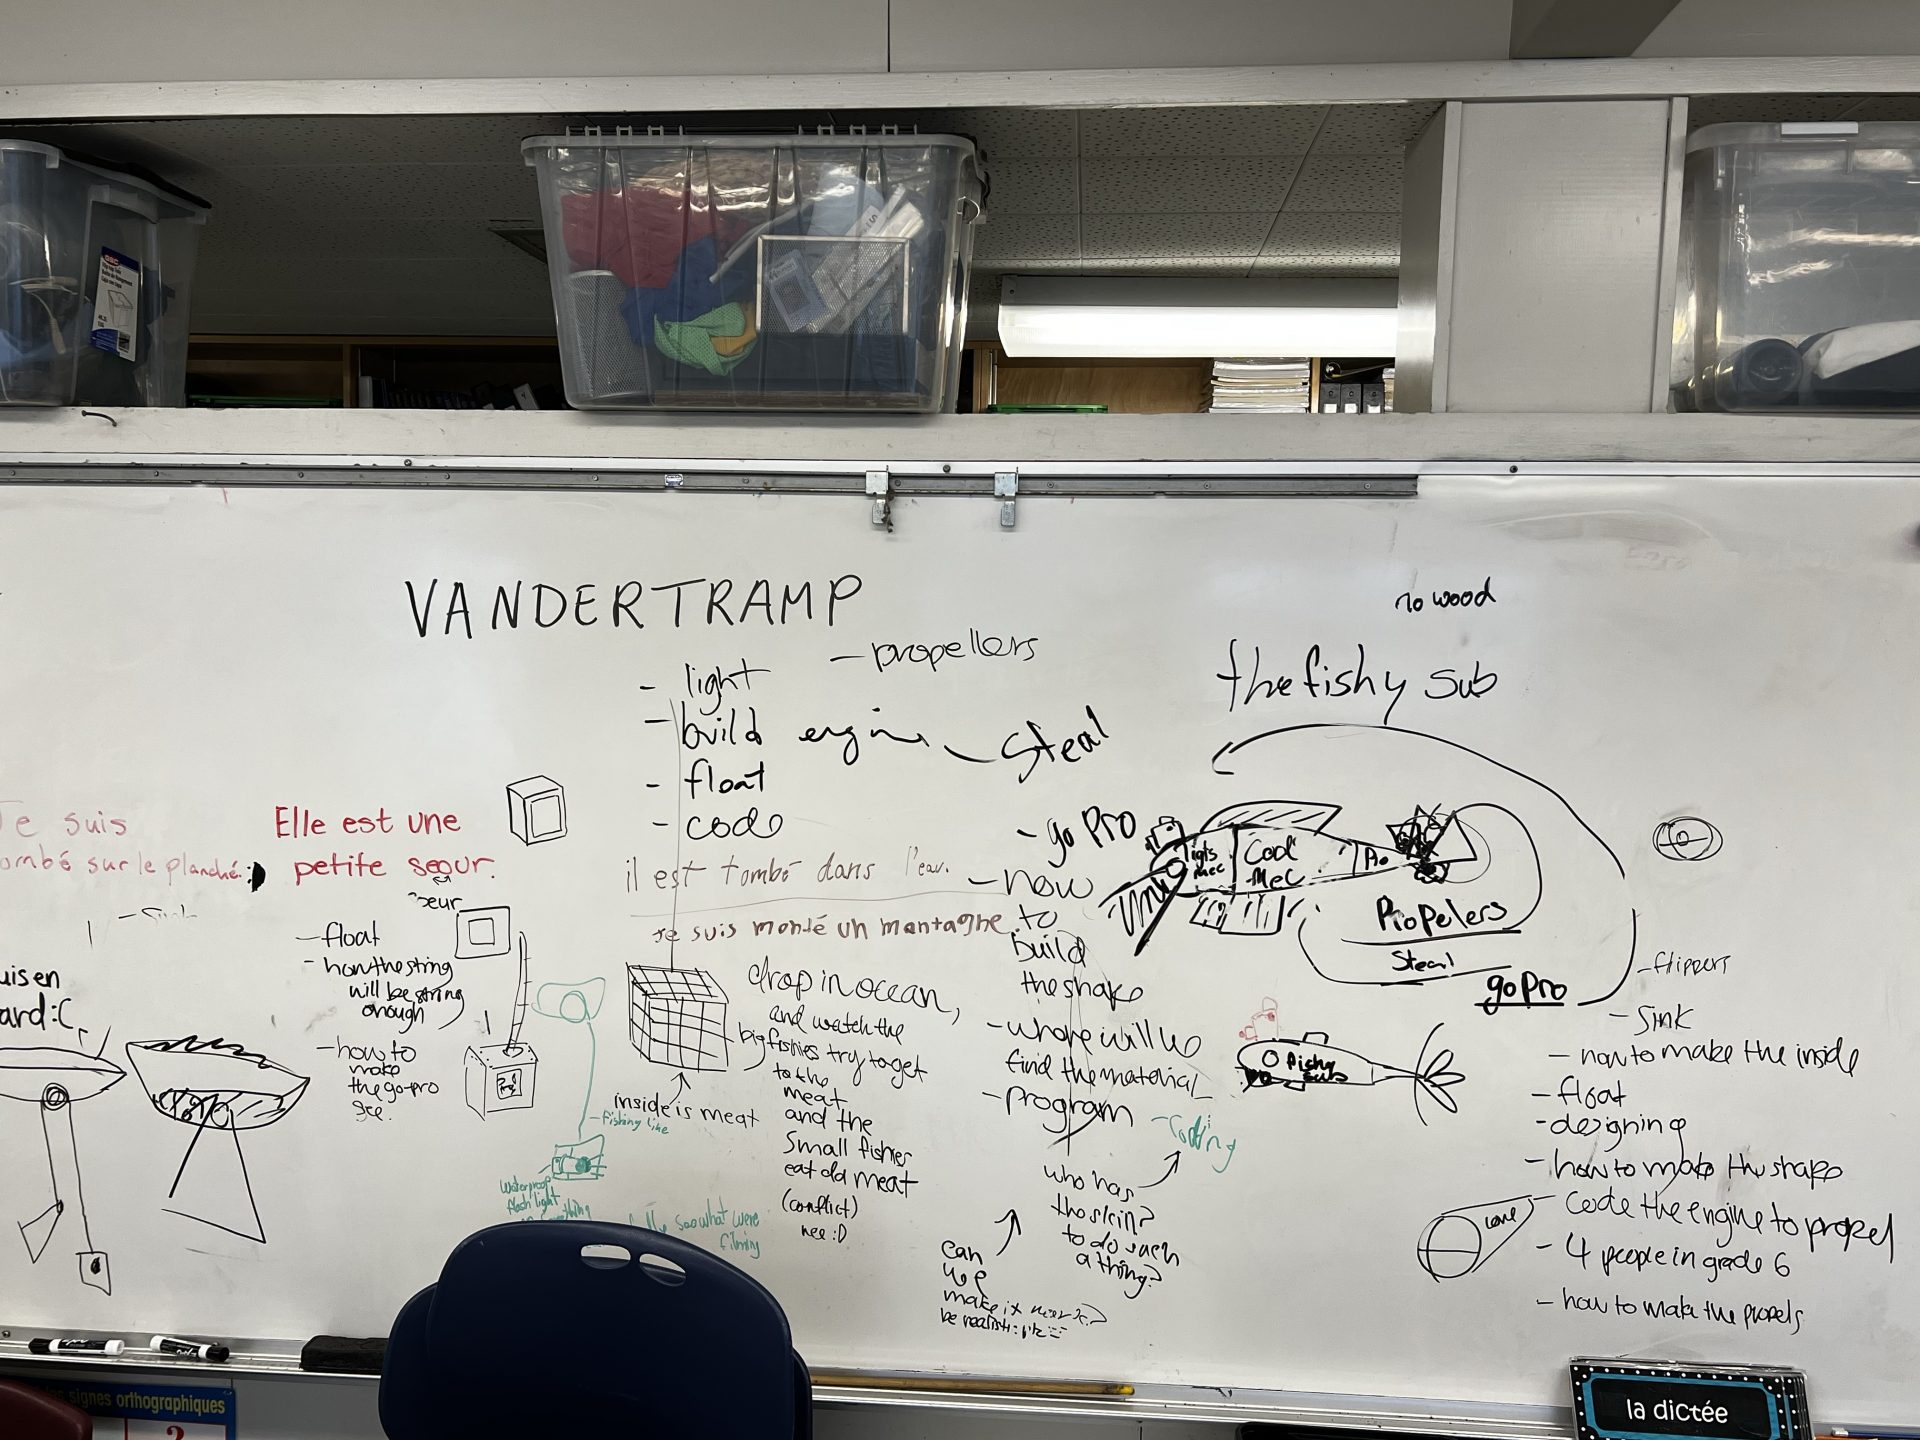 VANDERTRAMP
- propellers
- light
- build engin
- Steal
- float
- code
no wood
the fishy sub
Je suis
tombé sur le planché.
Elle est une
petite seour.
il est tombé dans l'eau.
Je suis monté un montagne.
- go pro
- how
to
build
the shape
- where will we
find the material
- program
- Coding
who has
the skin?
to do such
a thing?
can
we
make it
Cool
Mec
Propelers
Steal
go pro
fishy
sub
- float
- how the string
will be string
enough
- how to
make
the go-pro
see.
uis en
ard :C
inside is meat
drop in ocean,
and watch the
big fishies try to get
to the
meat
and the
Small fishies
eat da meat
(conflict)
nee :D
- fishing line
waterproof
flash light
see what were
filming
- flippers
- sink
- how to make the inside
- float
- designing
- how to make the shape
- code the engine to propel
- 4 people in grade 6
- how to make the propels
les signes orthographiques
?
la dictée